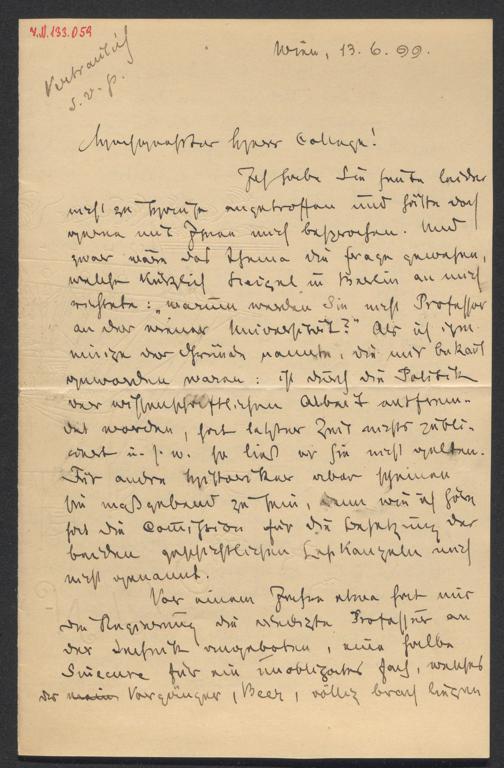 I.N. 133.059
Vertraulich
s. v. p.
Wien, 13. 6. 99.
Hochgeehrter Herr College!
Ich habe Sie heute leider
nicht zu Hause angetroffen und hätte doch
gerne mit Ihnen mich besprochen. Und
zwar wäre das Thema die Frage gewesen,
welche kürzlich in Berlin an mich
richtete: „warum werden Sie nicht Professor
an der Wiener Universität?" Als ich ihm
einige der Gründe nannte, die mir bekannt
geworden waren: ich durch die Politik
der wissenschaftlichen Arbeit entfrem-
det worden, hat letzter Zeit nichts publi-
cirt u. s. w. so ließ er sie nicht gelten.
Für andre Historiker aber scheinen
sie maßgebend zu sein, denn wie ich höre
hat die Comission für die Besetzung der
beiden geschichtlichen Lehrkanzeln mich
nicht genannt.
Vor einem Jahre etwa hat mir
die Regierung die erledigte Professur an
der Technik angeboten, eine halbe
Sinecure für ein inobligates Fach, welches
der Vorgänger, Beer, völlig brach liegen